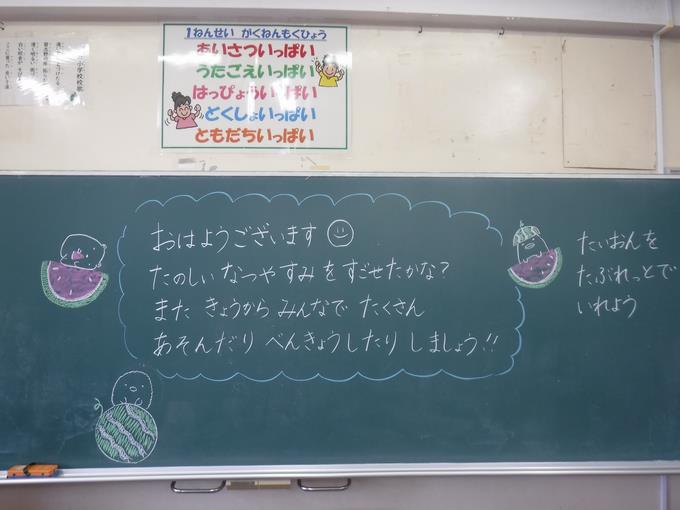 1ねんせい がくねんもくひょう
あいさついっぱい
うたごえいっぱい
はっぴょういっぱい
どくしょいっぱい
ともだちいっぱい
おはようございます
たのしい なつやすみを すごせたかな?
また きょうから みんなで たくさん
あそんだり べんきょうしたり しましょう!!
たいおんを
たぶれっとで
いれよう